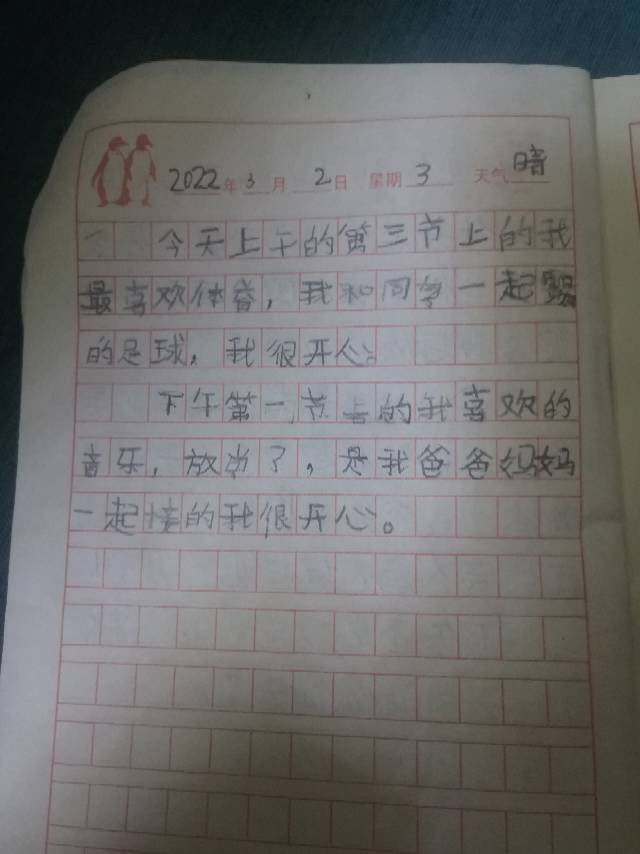 2022年3月2日 星期3 天气晴
今天上午的第三节上的我
最喜欢体育，我和同学一起踢
的足球，我很开心。
下午第一节上的我喜欢的
音乐，放学了，是我爸爸妈妈
一起接的我很开心。